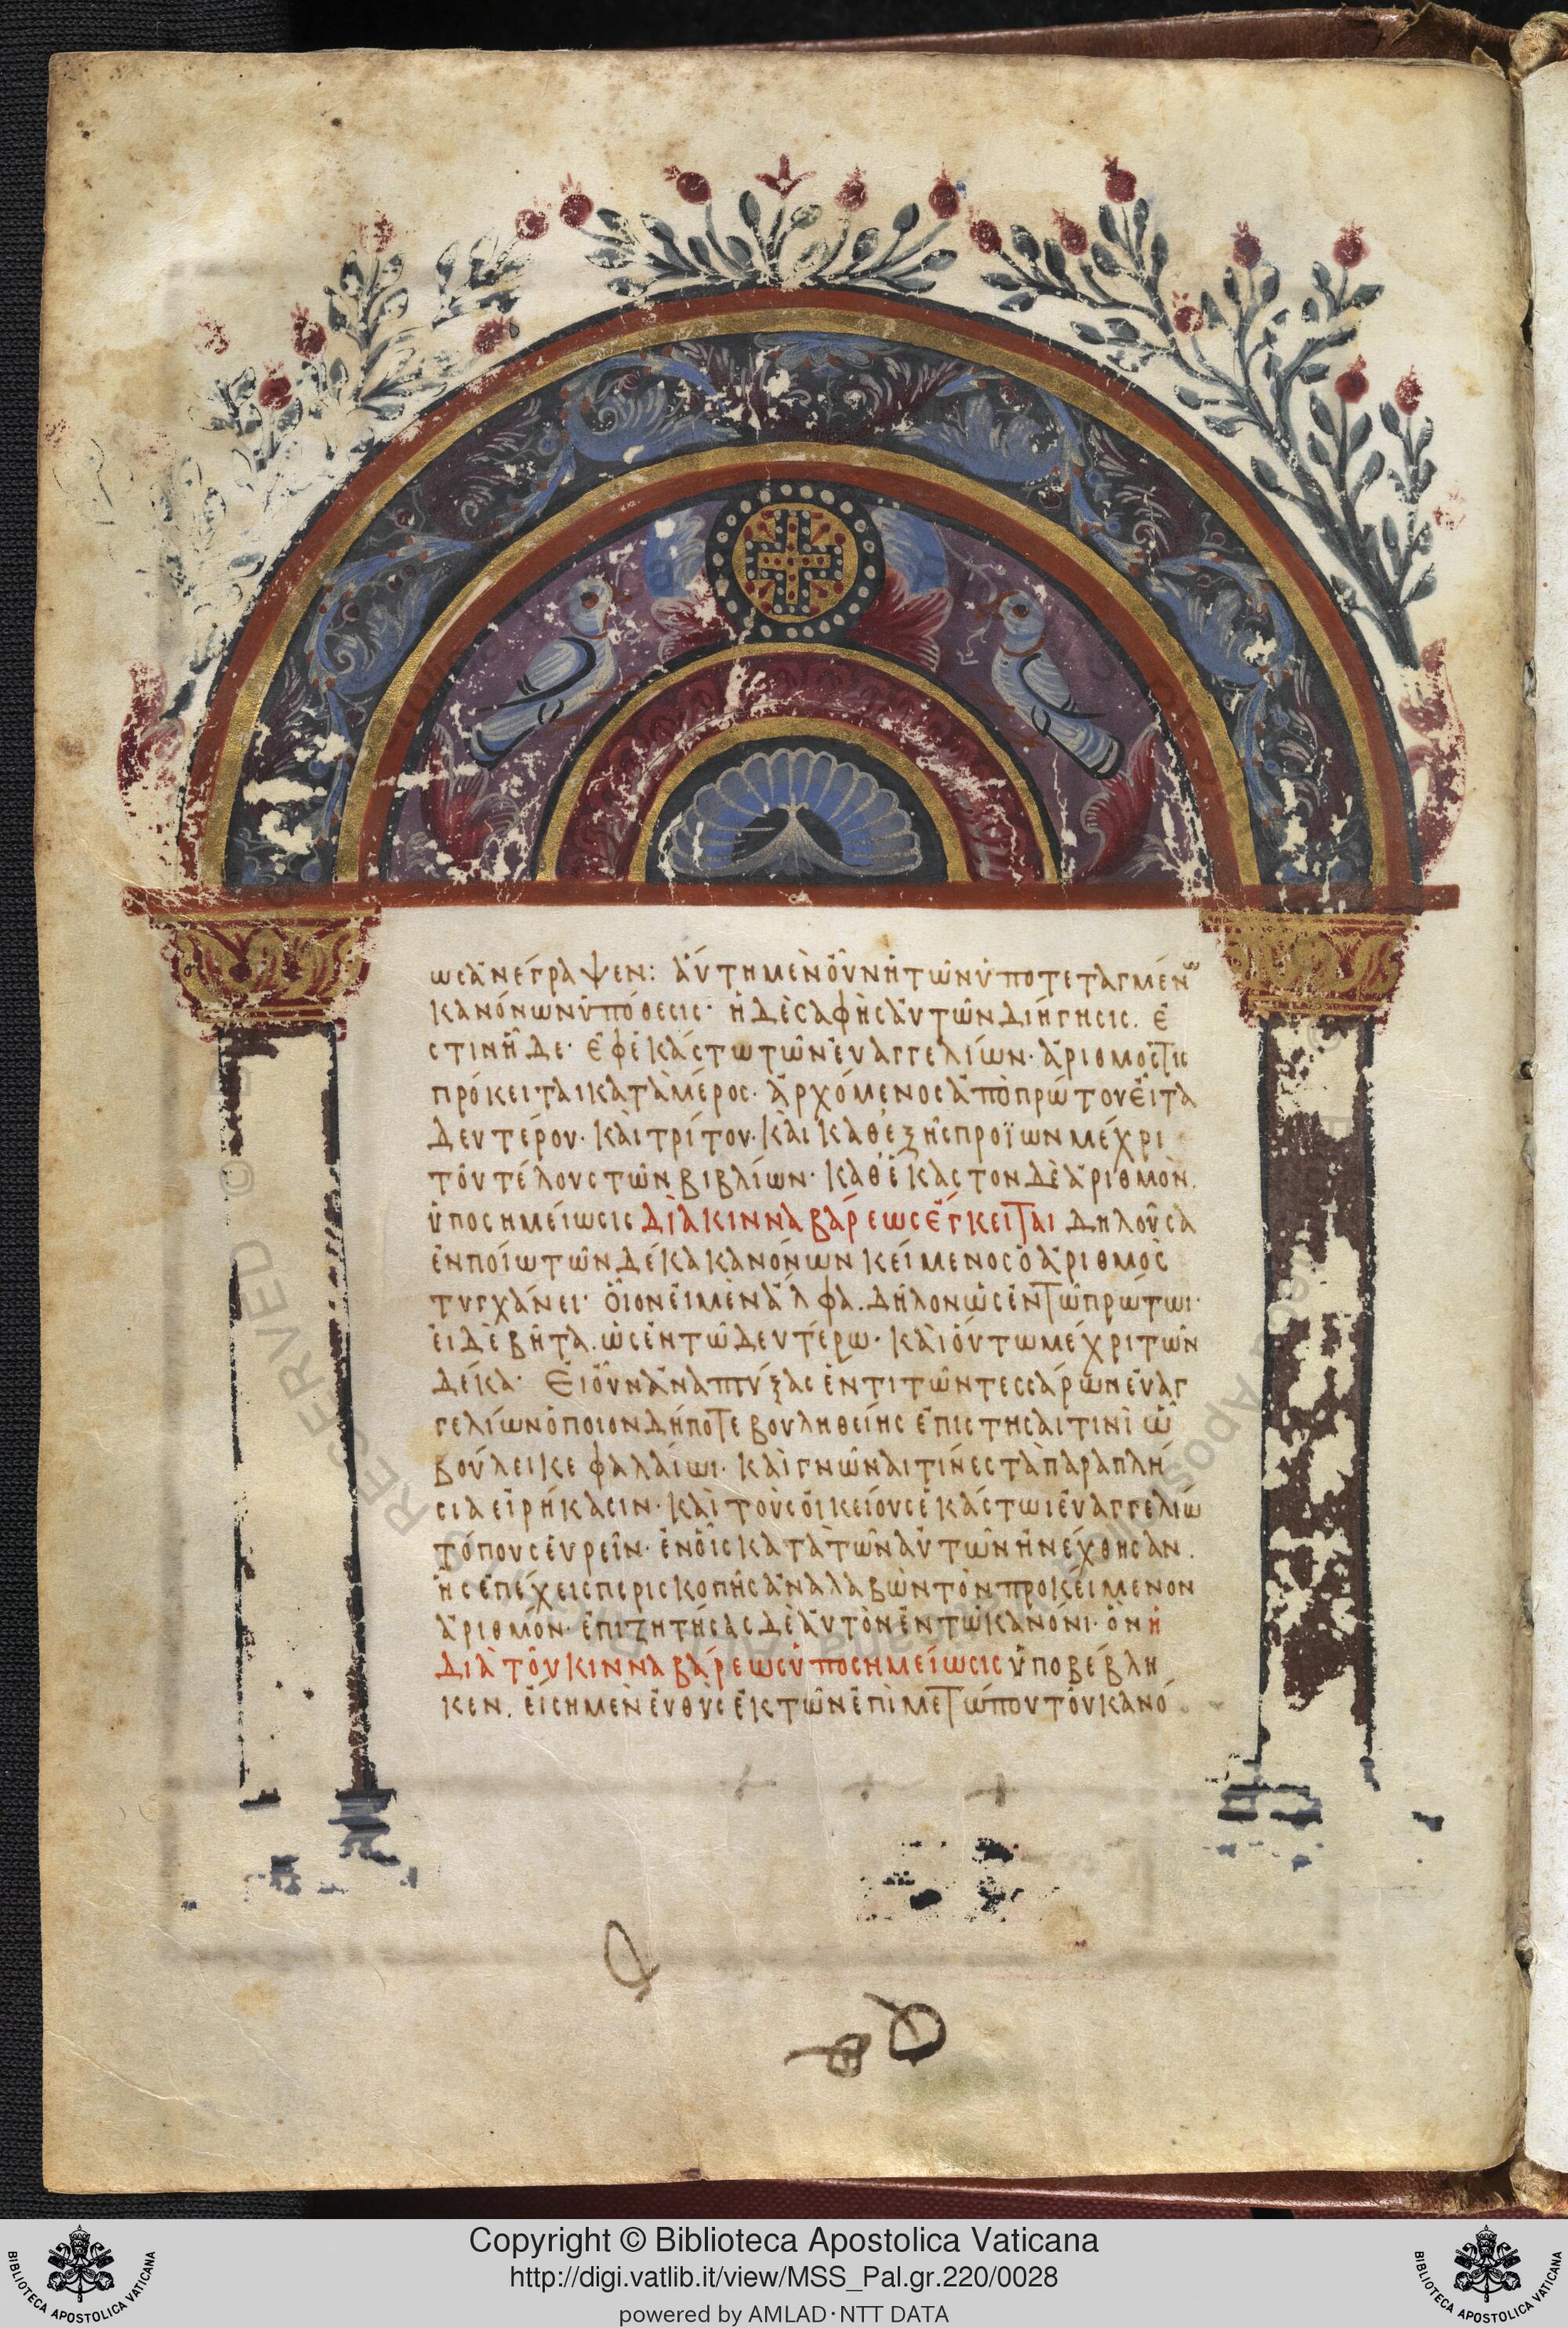 ὡς ἀνέγραψεν: ἀύτη μὲν ὀῦν ἡ τῶν ὑποτεταγμένων
κανόνων ὑπόθεσις· ἡ δὲ σαφὴς ἀυτῶν διήγησις. ἐ
στιν ἥδε· ἐφ ἑκάστω τῶν ἐυαγγελίων· ἀριθμός τις
πρόκειται κατὰ μέρος· ἀρχόμενος ἀπὸ πρώτου εἶτα
δευτέρου· κὰι τρίτου· κὰι καθεξῆς προϊὼν μέχρι
τοῦ τέλους τῶν βιβλίων· καθ ἕκαστον δὲ ἀριθμὸν.
ὑποσημείωσις διὰ κινναβάρεως ἔγκειται δηλοῦσα
ἐν ποίω τῶν δέκα κανόνων κείμενος ὁ ἀριθμὸς
τυγχάνει· ὅιον εἰ μὲν ἄλφα. δῆλον ὡς ἐν τῶ πρώτωι·
ἐι δὲ βῆτα. ὡς ἐν τῶ δευτέρω· κὰι ὅυτω μέχρι τῶν
δέκα· Ἐι ὀῦν ἀναπτύξας ἕν τι τῶν τεσσάρων ἐυαγ
γελίων ὁποιονδήποτε βουληθείης ἐπιστῆσαι τινὶ ὧ
βούλει κεφαλαίωι· κὰι γνῶναι τίνες τὰ παραπλή
σια εἰρήκασιν· κὰι τοὺς ὀικείους ἑκάστωι ἐυαγγελίω
τόπους ἑυρεῖν· ἐν ὁῖς κατὰ τῶν ἀυτῶν ἠνέχθησαν.
ἧς ἐπέχεις περισκοπῆς ἀναλαβὼν τὸν προκείμενον
ἀριθμόν· ἐπιζητήσας δὲ ἀυτὸν ἐν τῶ κανόνι· ὃν ἡ
διὰ τοῦ κινναβάρεως ὑποσημείωσις ὑποβέβλη
κεν. ἐίση μὲν ἐυθὺς ἐκ τῶν ἐπὶ μετώπου τοῦ κανό
RESERVED ©
Copyright © Biblioteca Apostolica Vaticana
http://digi.vatlib.it/view/MSS_Pal.gr.220/0028
powered by AMLAD · NTT DATA
BIBLIOTECA APOSTOLICA VATICANA
BIBLIOTECA APOSTOLICA VATICANA